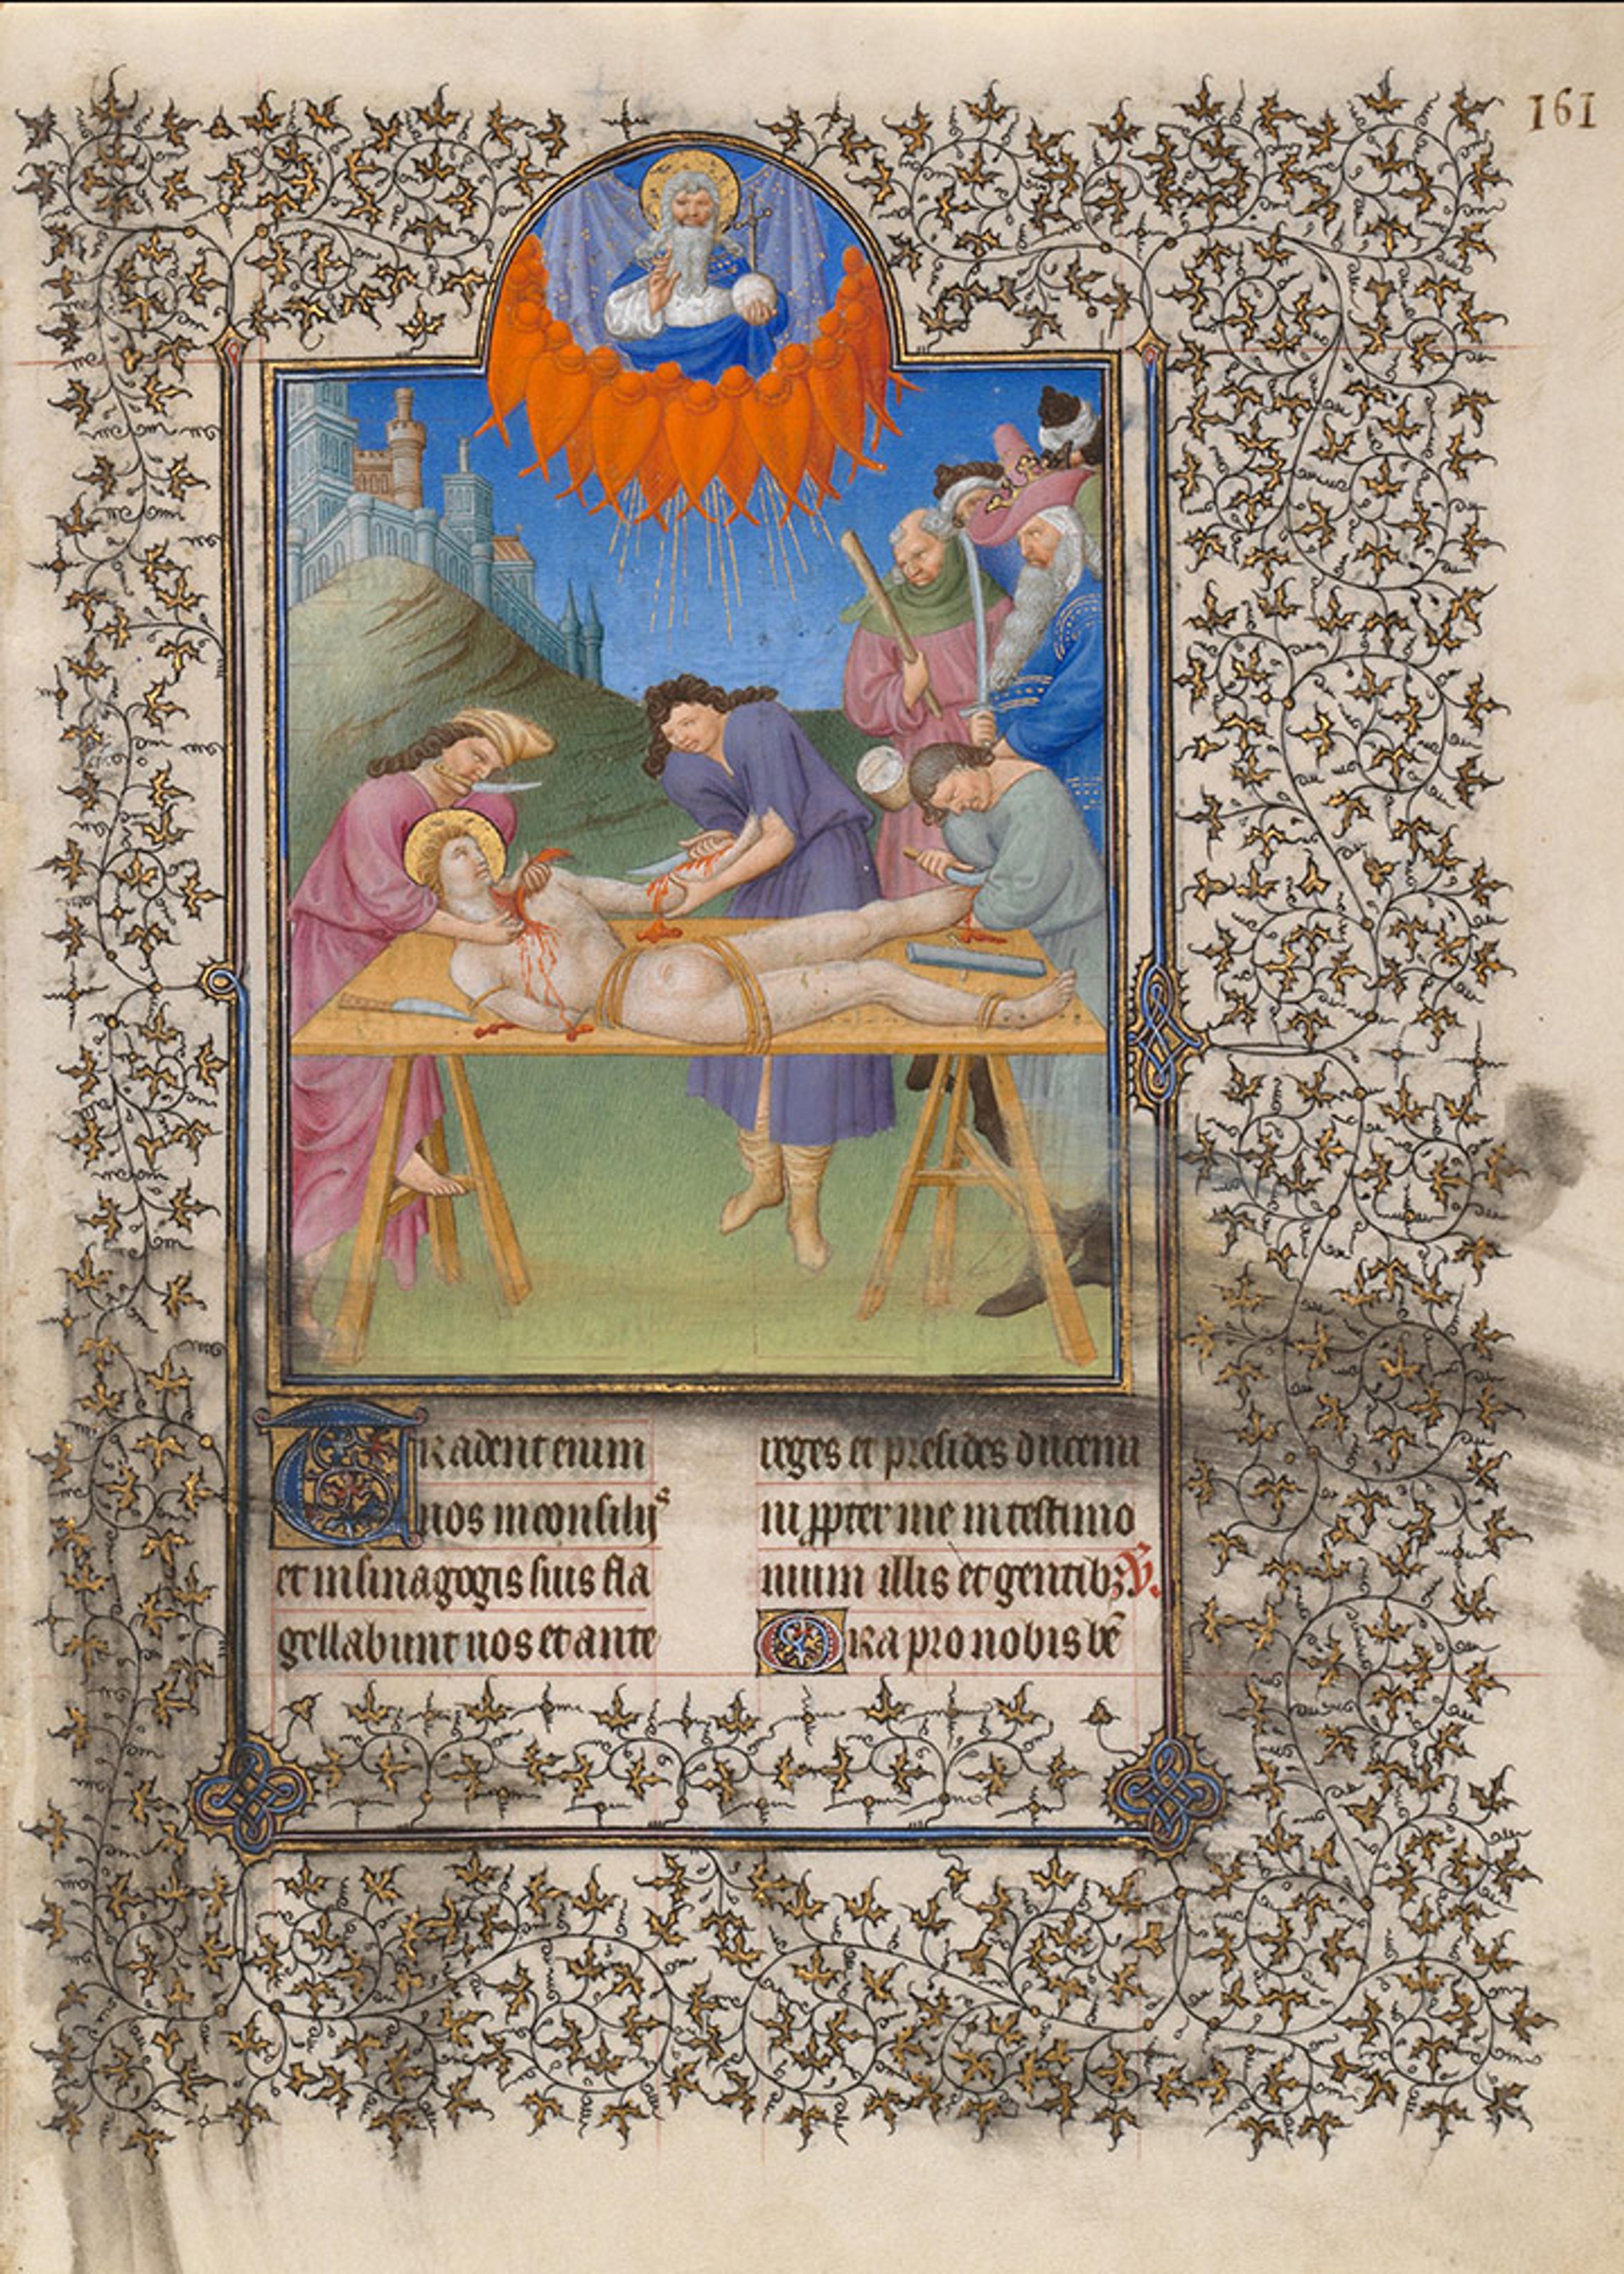 161
Tradent enim
uos in consiliis
et in sinagogis suis fla
gellabunt uos et ante
reges et presides duceni
ni ppter me in testimo
nium illis et gentib; V.
Ora pro nobis be